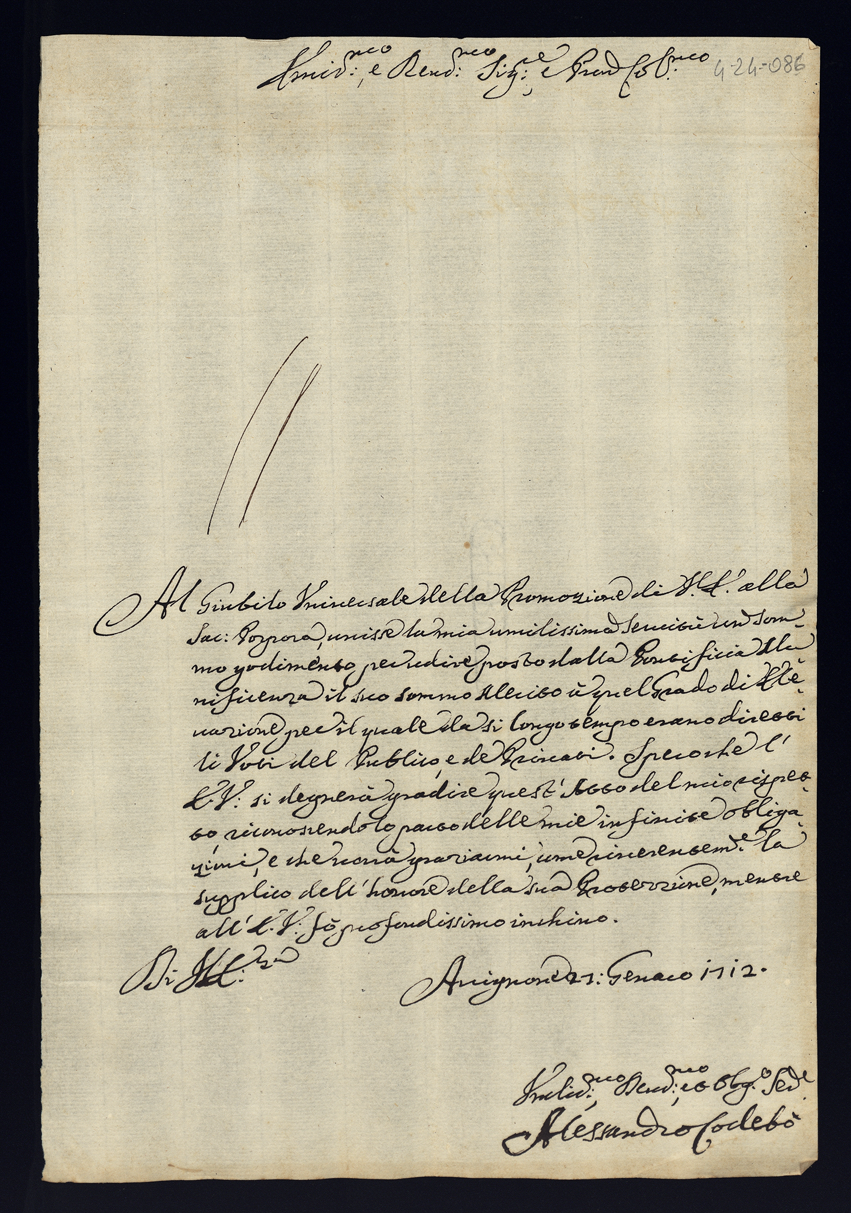 Emin:mo, e Rend:mo Sig:re, e Pron Col:mo 4-24-086
Al Giubilo Universale della Promozione di V.E. alla
Sac: Porpora, unisce la mia umilissima Servitù un som-
mo godimento per udire posto dalla Pontificia Mu-
nificenza il suo sommo Merito à quel Grado di Ele-
vazione per il quale da si longo tempo erano diretti
li Voti del Publico, e de Privati. Spero che l'
E.V: si degnerà gradire quest'Atto del mio rispet-
to riconoscendolo parto delle mie infinite obliga-
zioni, e che vorrà graziarmi, come riverentem:e la
supplico dell'honore della sua Protezzione, mentre
all'E.V: fò profondissimo inchino.
Di V.E:za
Avignone 27: Genaro 1712.
Umilis:mo Devd:mo et Obg:o Serd:e
Alessandro Codebò